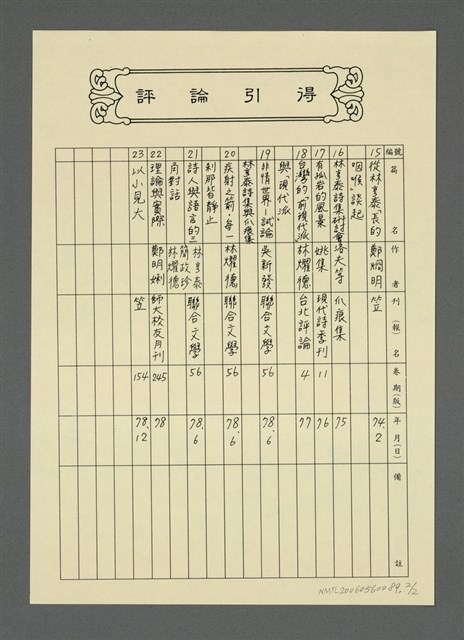 得引論評
編號 篇名 作者 刊(報)名 卷期(版) 年月(日) 備註
15 從林亨泰「長的咽喉」談起 鄭烱明 笠 74.2
16 林亨泰詩集研討會 洛夫等 爪痕集 75
17 有孤岩的風景 姚集 現代詩季刊 11 76
18 台灣的「前現代派」與「現代派」 林燿德 台北評論 4 77
19 非情世界─試論林亨泰詩集與爪痕集 吳新發 聯合文學 56 78.6
20 疾射之箭,每一剎那皆靜止 林燿德 聯合文學 56 78.6
21 詩人與語言的三角對話 林亨泰 簡政珍 林燿德 聯合文學 56 78.6
22 理論與實際 鄭明娳 師大校友月刊 245 78
23 以小見大 笠 154 78.12
NMTL20060560089, 2/2